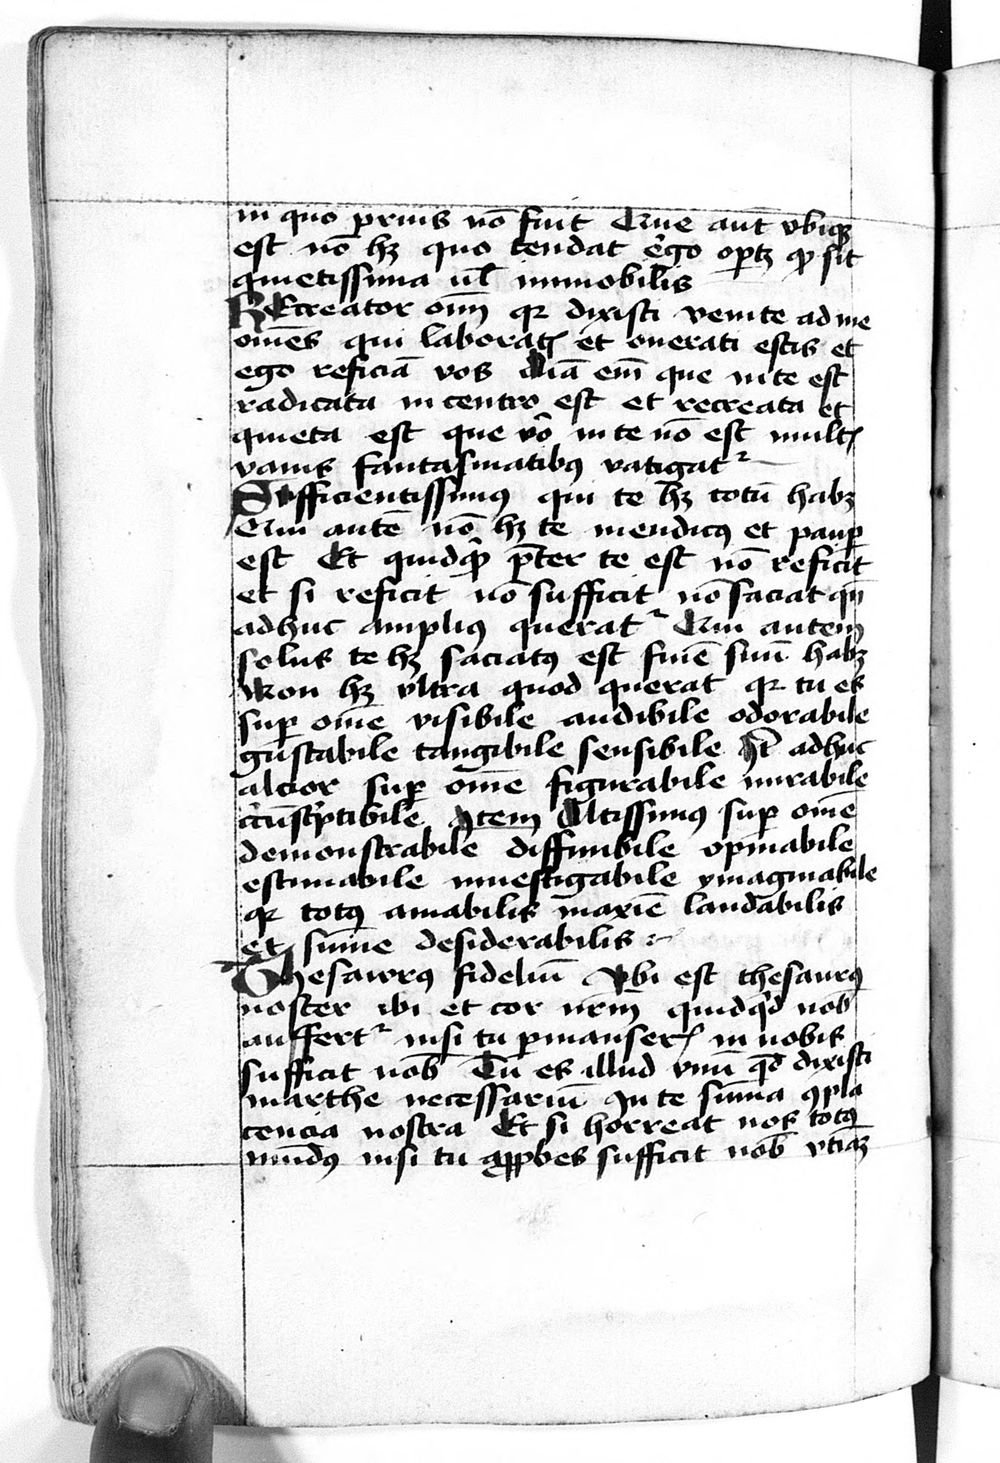 in quo prius nō fuit Que aut̄ vbiqꝫ
est nō hꝫ quo tendat ergo oportꝫ ꝙ sit
quietissima ul̄ immobilis
REcreator oīm qr dixisti venite ad me
omēs qui laboratꝭ et onerati estis et
ego reficiā vos Aīa em̄ que in te est
radicata in centro est et recreata et
quieta est que vo in te nō est multꝭ
vanis fantasmatibꝰ vatigatᷣ
Sufficientissimꝰ qui te hꝫ totū habꝫ
Qui autē nō hꝫ te mendicꝰ et paup
est Et quidqꝫ p̄ter te est nō reficit
et si reficit nō sufficit nō saciat qn̄
adhuc ampliꝰ queratᷣ Qui autem
solus te hꝫ saciatꝰ est finē suū habꝫ
Non hꝫ vltra quod querat qr tu es
sup om̄e visibile audibile odorabile
gustabile tangibile sensibile It̄ adhuc
alcior sup om̄e figurabile mirabile
circūscptibile Item Altissimꝰ sup om̄e
demonstrabile diffinibile opinabile
estimabile inuestigabile ymaginabile
qr totꝰ amabilis maxīe laudabilis
et sum̄e desiderabilis
Thesawrꝰ fideliū Vbi est thesaurꝰ
noster ibi et cor nr̄m quidqd nob
auffertᷣ nisi tu pmanserꝭ in nobis
sufficit nob̄ Tu es illud vnū qd̄ dixisti
marthe necessariū In te sum̄a ꝯpla
cencia nostra Et si horreat nos totꝰ
mūdꝰ nisi tu approbes sufficit nob̄ vtiqꝫ